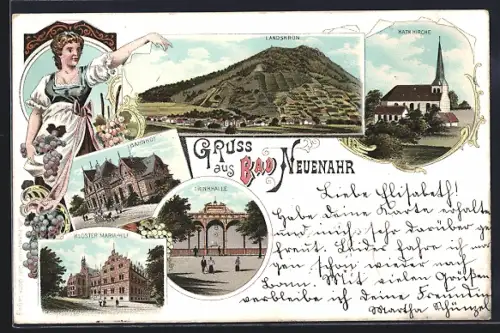 LANDSKRON
KATH. KIRCHE
BAHNHOF
GRUSS
aus BAD NEUENAHR
TRINKHALLE
KLOSTER MARIAHILF
Liebe Elisabeth!
Habe deine Karte erhalten
und mich sehr darüber ge
freut. Leider fahre ich mor
gen schon wieder nach
Bonn. Mit vielen Grüßen
verbleibe ich deine Freundin
Martha Schünzel